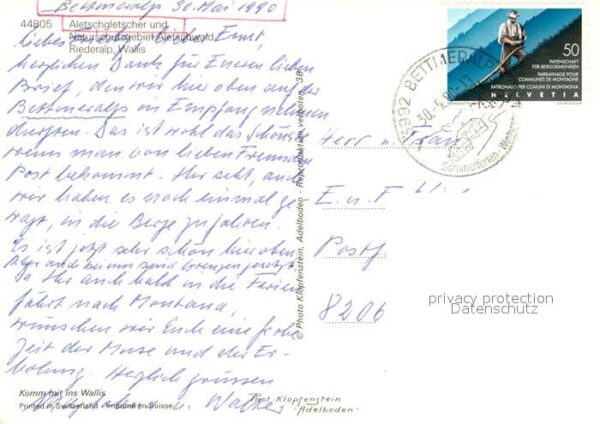 Bettmeralp 30. Mai 1990
44805 Aletschgletscher und
Naturschutzgebiet Aletschwald
Riederalp, Wallis
liebes Ernst,
herzlichen Dank für Eueren lieben
Brief, den wir hier oben auf der
Bettmeralp in Empfang nehmen
durften. Das ist wohl das Schönste
wenn man von lieben Freunden
Post bekommt. Ihr seht, auch
wir haben es noch einmal ge
wagt, in die Berge zu fahren.
Es ist jetzt sehr schön hier oben.
Aber auch bei uns sind Grenzen gesetzt.
Da Ihr auch bald in die Ferien
fährt nach Montana,
wünschen wir Euch eine frohe
Zeit der Muse und der Er-
holung. Herzlich grüssen
u. Walter
Komm mit ins Wallis
Printed in Switzerland - Imprimé en Suisse
© Photo Klopfenstein, Adelboden - Reproduktion verboten 38
Phot. Klopfenstein
Adelboden
3992 BETTMERALP
Sommerferien - Wandern
50
PATENSCHAFT
FÜR BERGGEMEINDEN
PARRAINAGE POUR
COMMUNES DE MONTAGNE
PATRONATO PER COMUNI DI MONTAGNA
HELVETIA
Herr u. Frau
E. u. F
Postf.
8206
privacy protection
Datenschutz